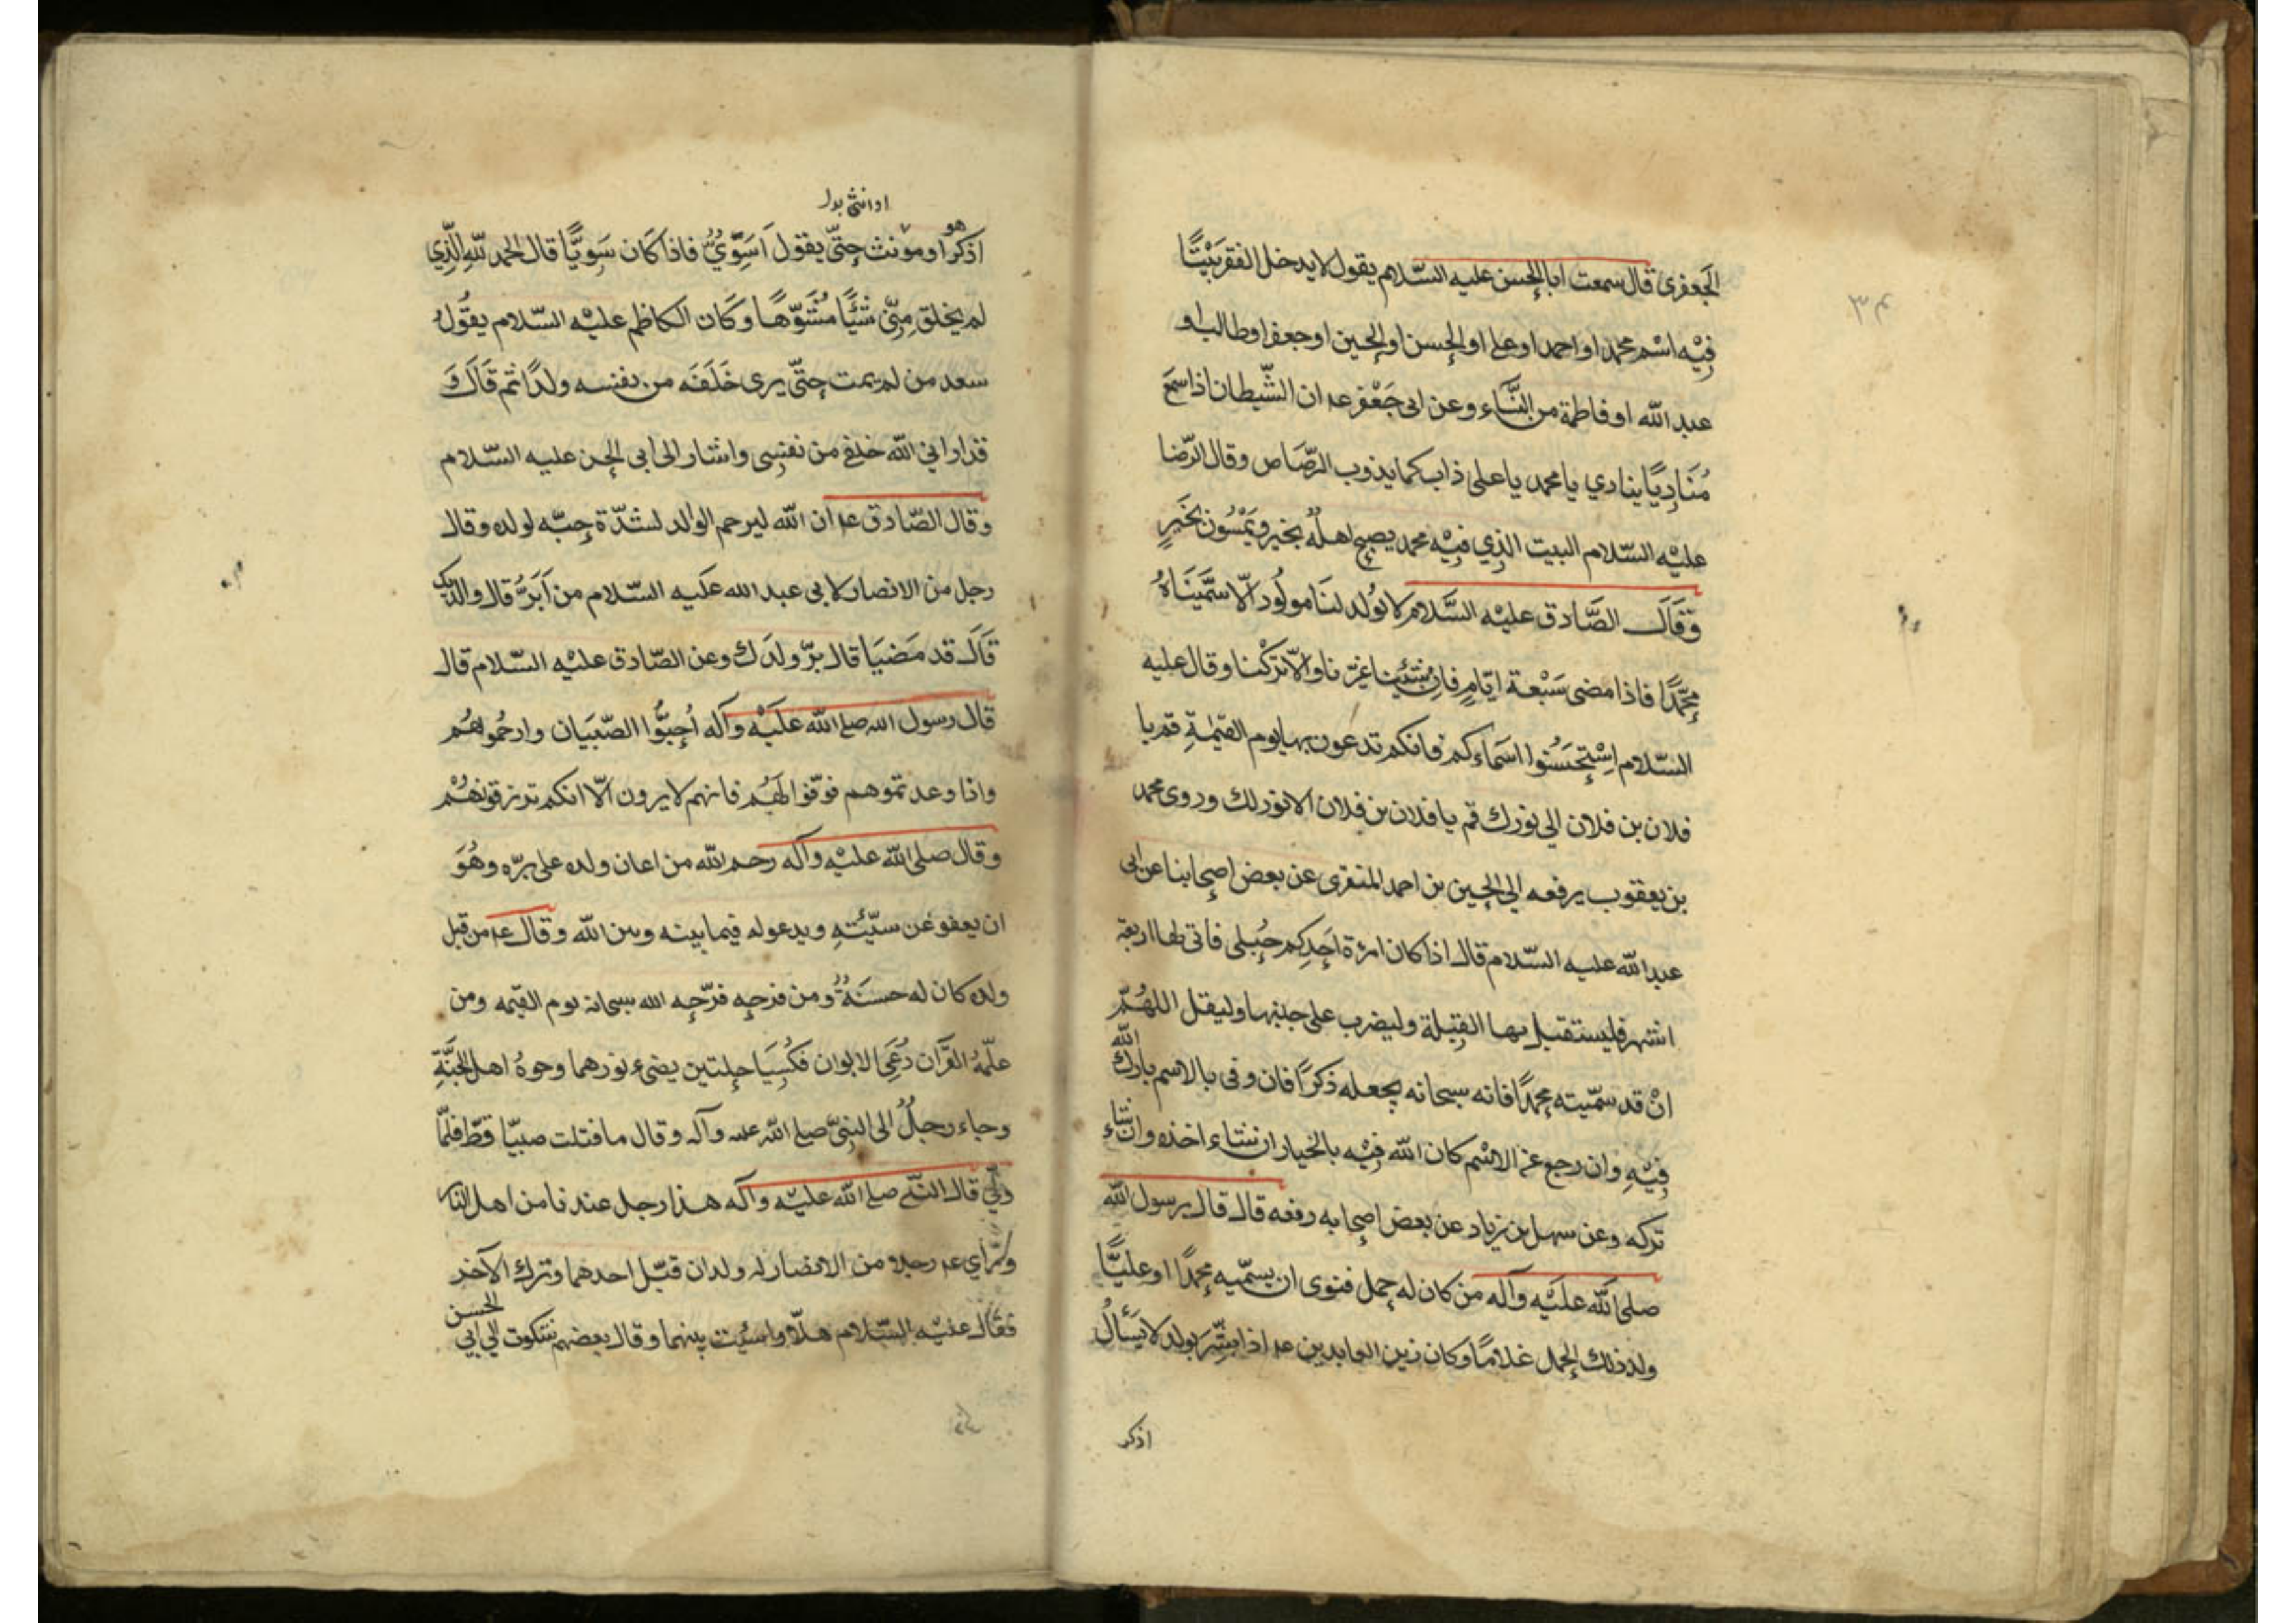 الجعفرى قال سمعت ابا الحسن عليه السّلام يقول لا يدخل الفقر بَيْتًا
فِيْه اسْم محمد او احمد او على او الحسن او الحسين او جعفر او طالب او
عبد الله او فاطمة من النّسَاء وعن ابى جَعْفر عه ان الشّيطان اذا سمَع
مُنَادِيًا ينادي يا محمد يا على ذاب كما يذوب الرّصَاص وقال الرّضا
عليْه السّلام البيت الذِي فيْه محمد يصبح اهلهُ بخير ويَمْسُون بخَيرٍ
وَقَالَ الصَّادق عليْه السَّلام لا يُولد لنَا مولُود الّا سَمَّينَاهُ
محمّدًا فاذا مضى سَبْعة ايّامٍ فاِن شئنا غيّرنا والّا تركْنا وقال عليه
السّلام اسْتحسَنُوا اسَماءكم فانكم تدعون بها يوم القيٰمةِ قم يا
فلان بن فلان الى نورك قم يا فلان بن فلان لا نور لك وروى محمد
بن يعقوب يرفعه الى الحسين بن احمد المنقرى عن بعض اصحابنا عن ابى
عبد الله عليه السّلام قال اذا كان امرءة احَدِكم حُبلى فاتى لها اربعة
اشهر فليستقبل بها القِبلة وليضرب على جنبها وليقل اللهُمّ
انْ قد سمّيته محمدًا فانه سبحانه يجعله ذكرًا فان وفى بالاسم بارك الله
فِيْهِ وان رجع عن الاسْم كان الله فِيْه بالخيار ان شاء اخذه وان شاء
تركه وعن سهل بن زياد عن بعض اصحابه رفعه قال قال رسول الله
صلى الله علَيْه وآله من كان له حمل فنوى ان يسمّيه محمدًا او عليًّا
ولد ذلك الحمل غلامًا وكان زين العابدين عه اذا بشّر بولد لا يسَألُ
اذكر
او انثى بدل
هو
اذكرا ومؤنث حتّى يقول اَسَوِّيٌّ فاذا كَان سَوِيًّا قال الحمد للهِ الَّذِي
لم يخلق مِنّى شَيًّا مُشَوّهًا وكَان الكاظم عليْه السّلام يقُولُ
سعد من لم يمت حتّى يرى خَلَفَه من نفسه ولدًا ثم قَالَ وَ
قد اراني الله خلفى من نفسِى واشار الى ابى الحسن عليه السّلام
وقال الصّادق عه ان الله ليرحم الوالد لشدّة حبّه لولده وقال
رجل من الانصار لابى عبد الله علَيه السّلام من اَبَرُّ قال والديك
قاَل قد مَضيَا قال برّ ولدَك وعن الصّادق عليْه السّلام قال
قال رسول الله صلى الله علَيْه وآله اُحِبُّوا الصّبيَان وارحُموهُم
واذا وعدتموهم فوَفّوا لَهُم فانهم لا يرون الّا انكم ترزقونَهُمْ
وقال صلى الله عليْه وآله رحم الله من اعان ولده على برّه وهُوَ
ان يعفو عن سيّئتهِ ويدعو له فيما بينه وبين الله وقال عه من قبل
ولده كان له حسنَةٌ ومن فرحِه فرّحِه الله سبحانه يوم القيمه ومن
علّمهُ القرَآن دُعَِى الابوان فكُسِيَا حلتين يضىء نورهما وجوهُ اهل الجنَّةِ
وجاء رجلٌ الى النبىّ صلى الله عله وآله وقال ما قبلت صبيّا قطّ فلمّا
ولّى قال النّبى صلى الله عليْه وآله هذا رجل عندنا من اهل النار
ورأي عه رجلا من الانصار له ولدان قبّل احدهما وترك الآخر
فقال عليْه السّلام هلّا واسيْت بينهما وقال بعضهم شكوت الى ابى الحسن